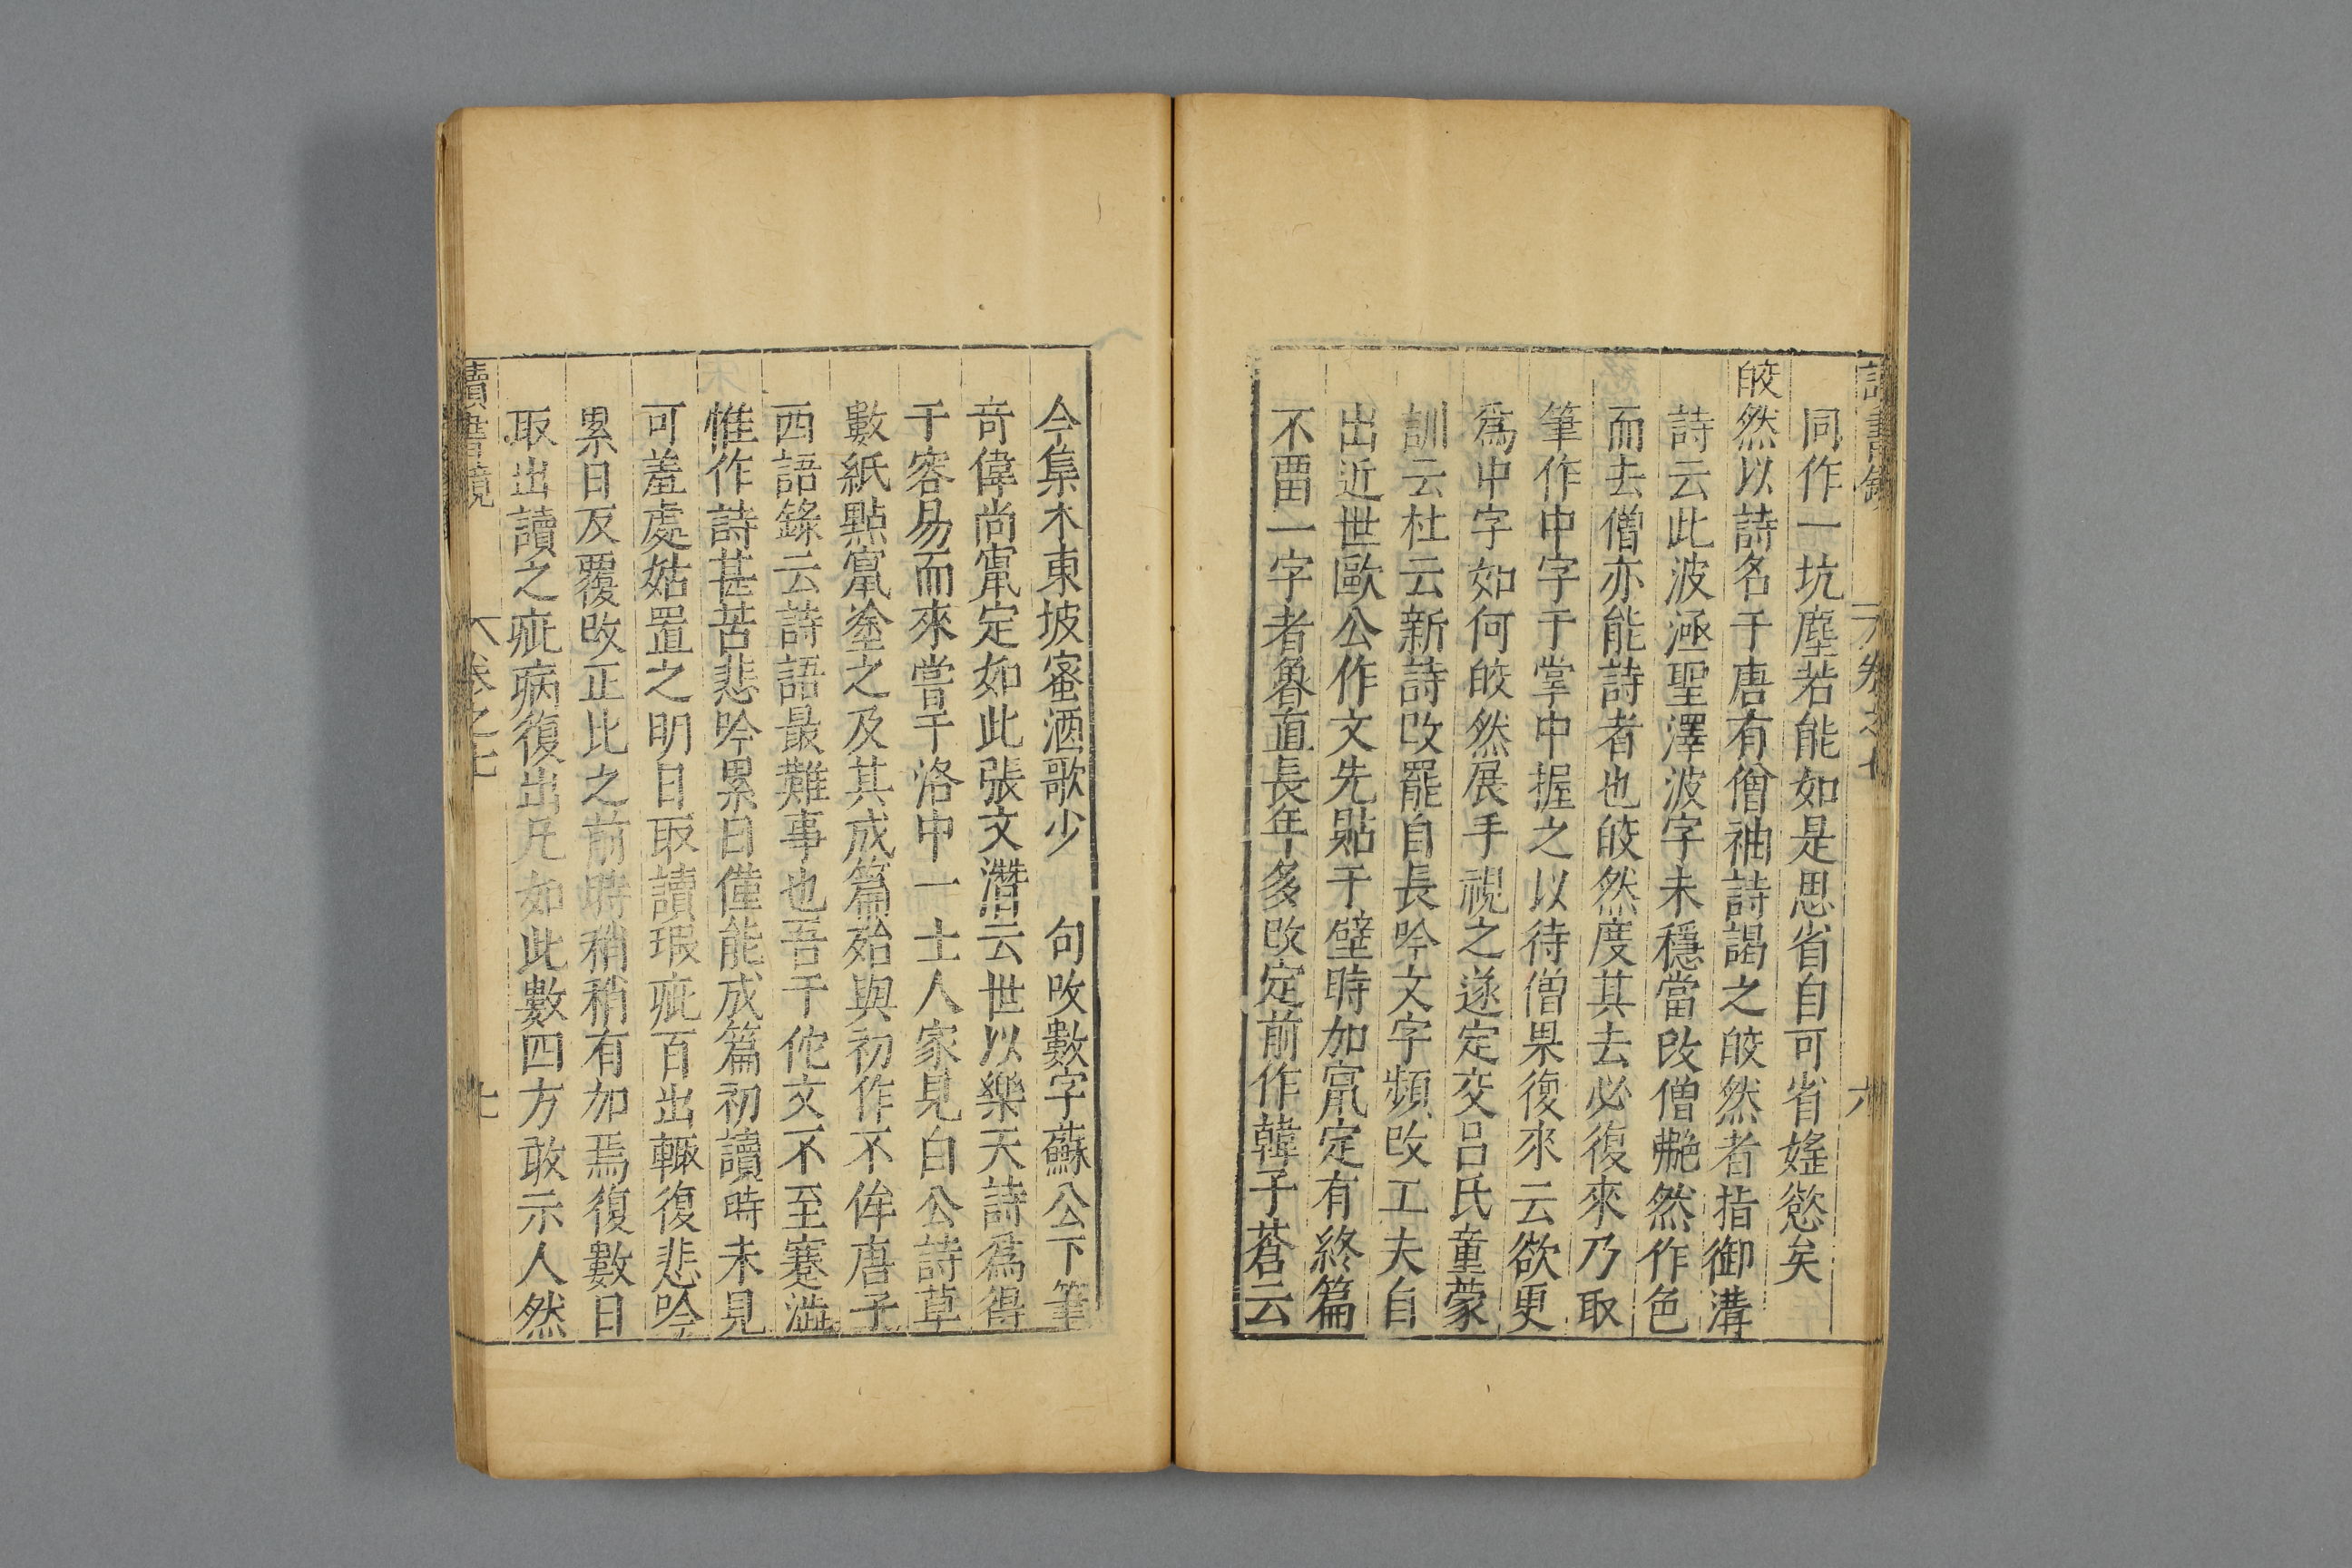 同作一坑塵若能如是思省自可省婬慾矣
皎然以詩名于唐有僧袖詩謁之皎然者指御溝
詩云此波涵聖澤波字未穩當改僧艴然作色
而去僧亦能詩者也皎然度其去必復來乃取
筆作中字于掌中握之以待僧果復來云欲更
爲中字如何皎然展手視之遂定交吕氏童蒙
訓云杜云新詩改罷自長吟文字頻改工夫自
出近世歐公作文先貼于壁時加竄定有終篇
不畱一字者魯直長年多改定前作韓子蒼云
今集木東坡蜜酒歌少 句改數字蘇公下筆
奇偉尚竄定如此張文潛云世以樂天詩爲得
于容易而來嘗于洛中一士人家見白公詩草
數紙點竄塗之及其成篇殆與初作不侔唐子
西語錄云詩語最難事也吾于他文不至蹇澁
惟作詩甚苦悲吟累日僅能成篇初讀時未見
可羞處姑置之明日取讀瑕疵百出輒復悲吟
累日反覆改正比之前時稍稍有加焉復數日
取出讀之疵病復出凡如此數四方敢示人然
讀書鏡 卷之七 七